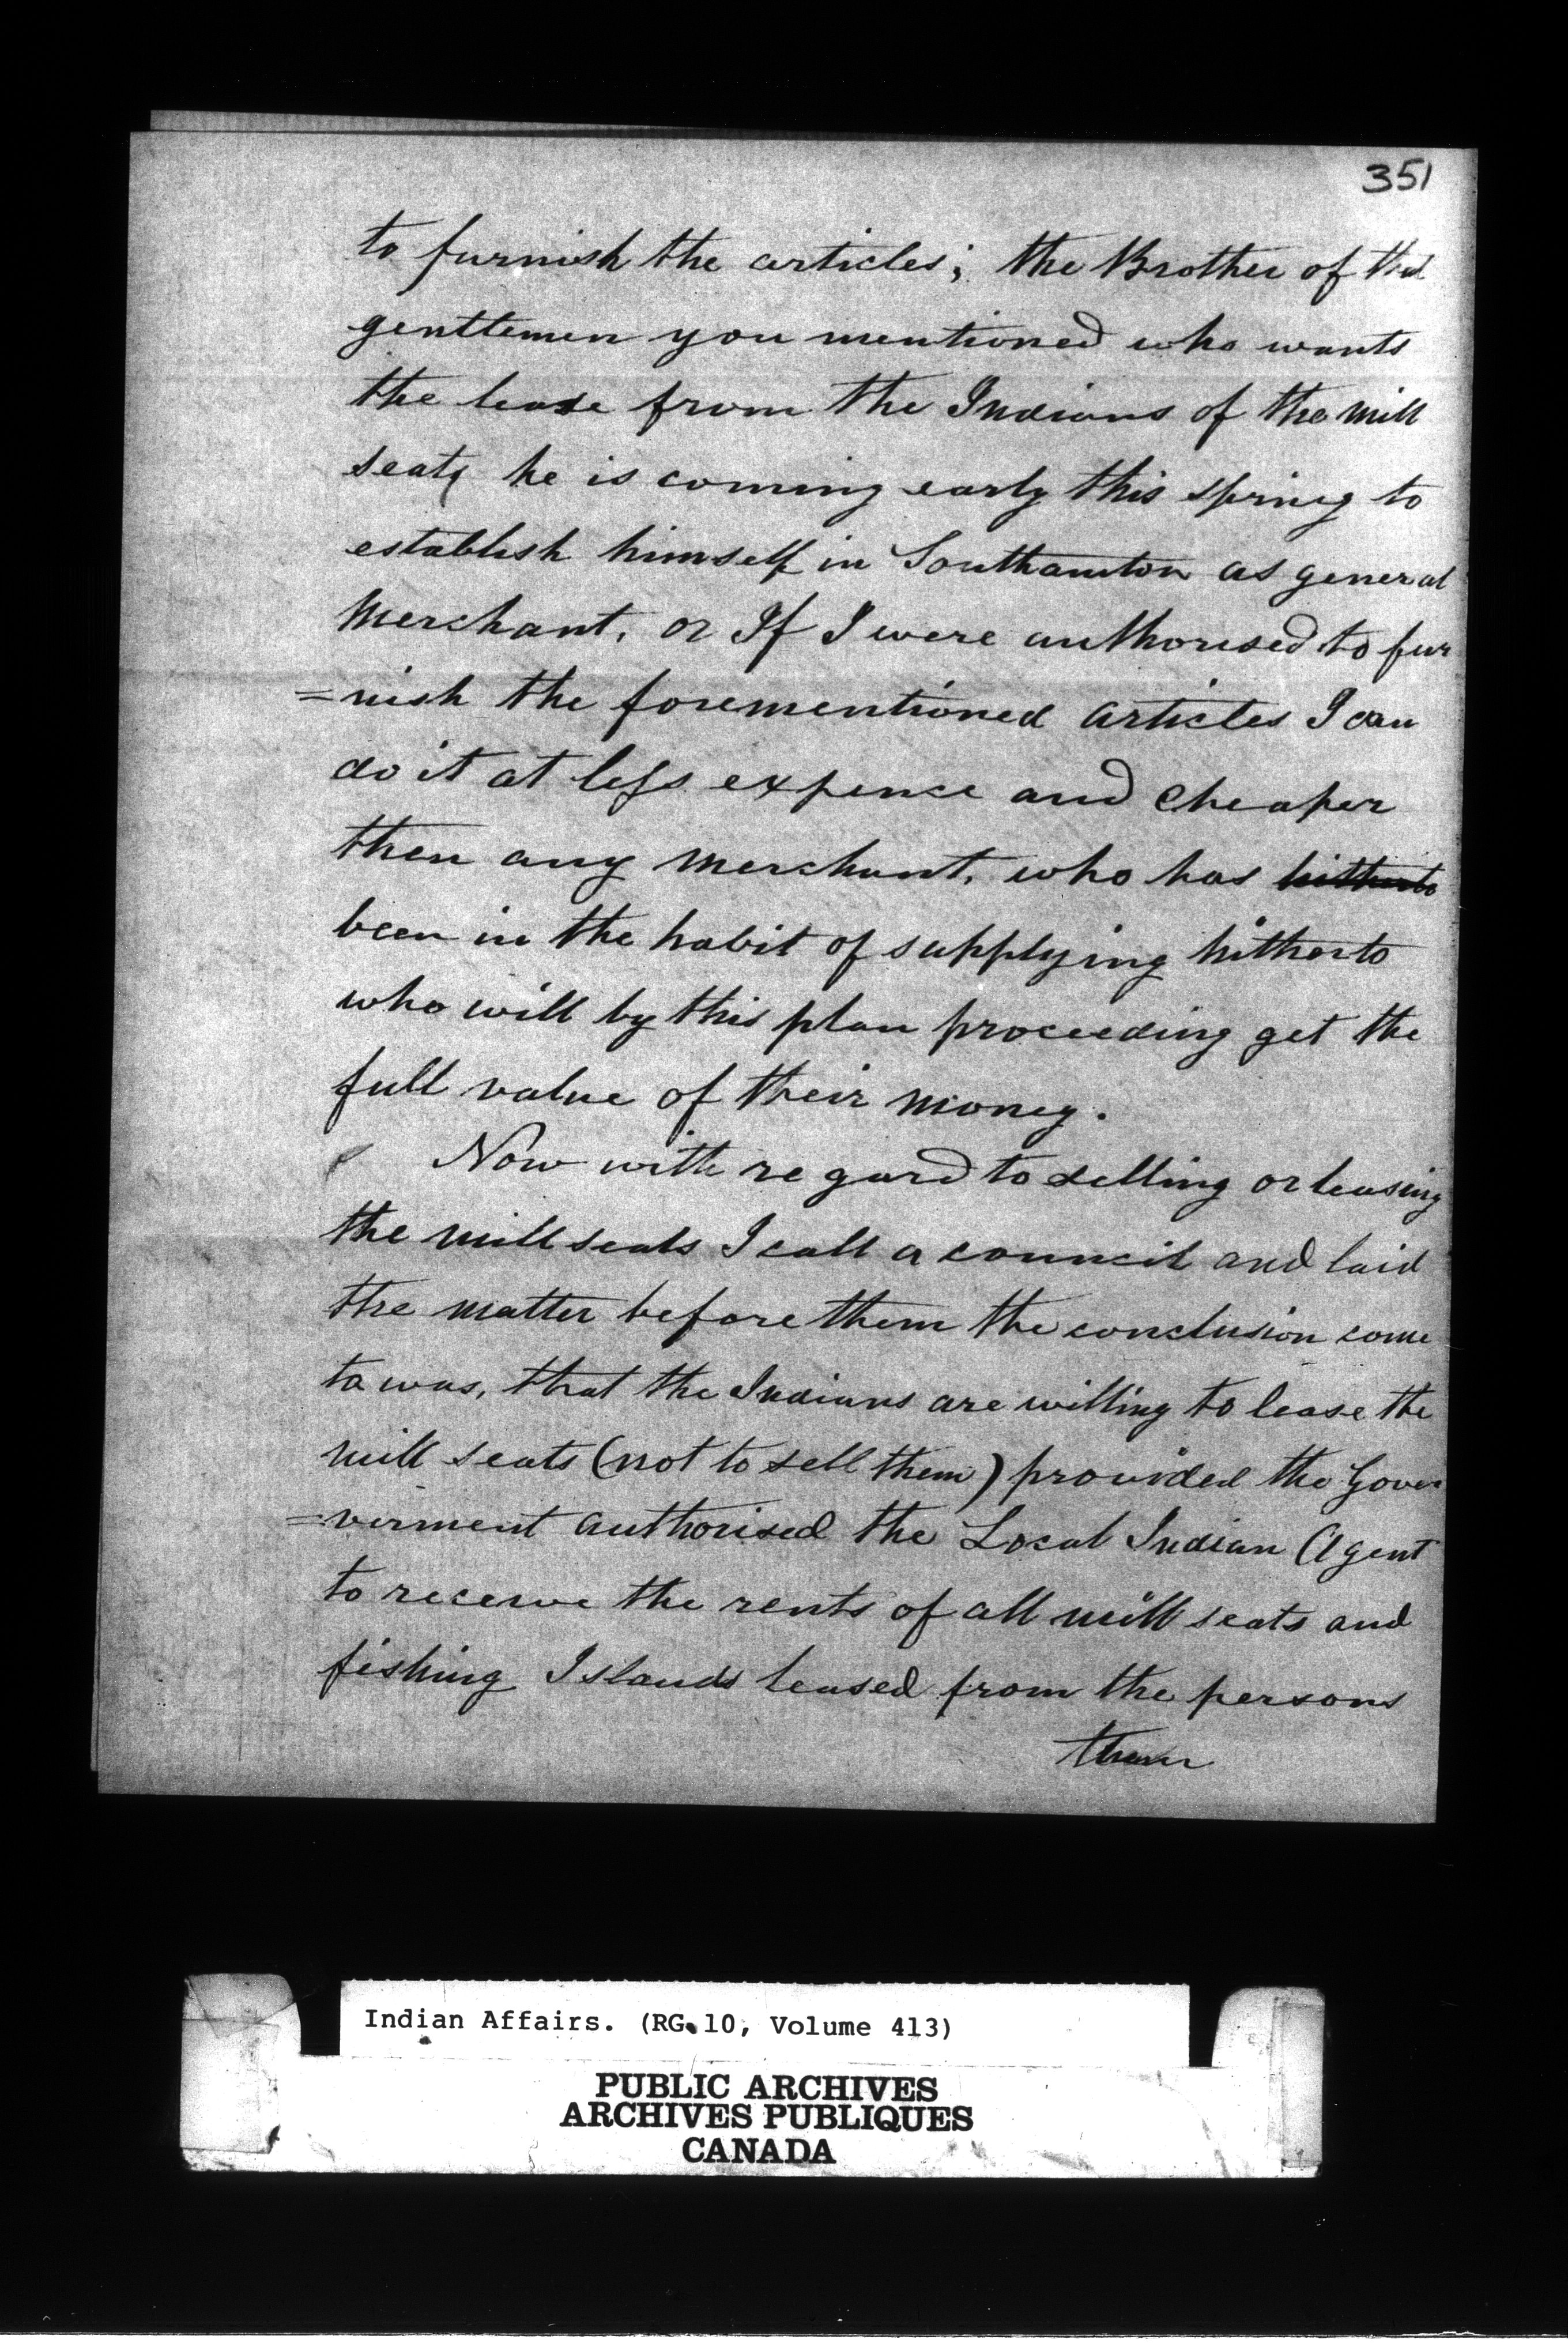 351
to furnish the articles; the Brother of that
gentlemen you mentioned who wants
the lease from the Indians of the mill
seats he is coming early this spring to
establish himself in Southamton as general
Merchant, or If I were authorised to fur
=nish the forementioned articles I can
do it at less expence and cheaper
then any merchant, who has hitherto
been in the habit of supplying hitherto
who will by this plan proceeding get the
full value of their money.
Now with regard to selling or leasing
the mill seats I call a council and laid
the matter before them the conclusion come
to was, that the Indians are willing to lease the
mill seats (not to sell them) provided the Gover
=verment authorised the Local Indian Agent
to receive the rents of all mill seats and
fishing Islands leased from the persons
them
Indian Affairs. (RG 10, Volume 413)
PUBLIC ARCHIVES
ARCHIVES PUBLIQUES
CANADA